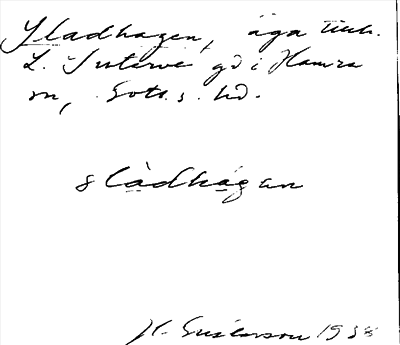 Sladhagen, äga tillh.
L. Sutarve gd i Hamra
sn, Gotl. s. hd.
slàdhágan
H. Gustavson 1938